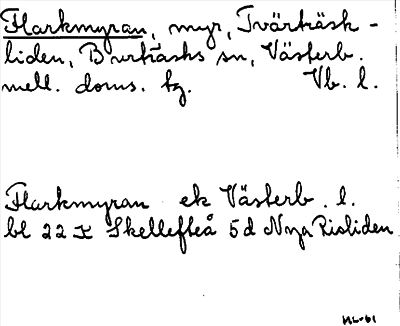 Flarkmyran, myr, Tvärträsk-
liden, Burträsks sn, Västerb.
mell. doms. tg. Vb. l.
Flarkmyran ek Västerb. l.
bl 22 K Skellefteå 5d Nya Risliden